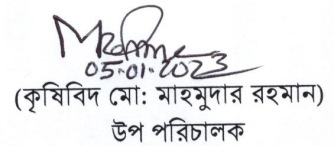 05-01-2023
(কৃষিবিদ মো: মাহমুদার রহমান)
উপ পরিচালক